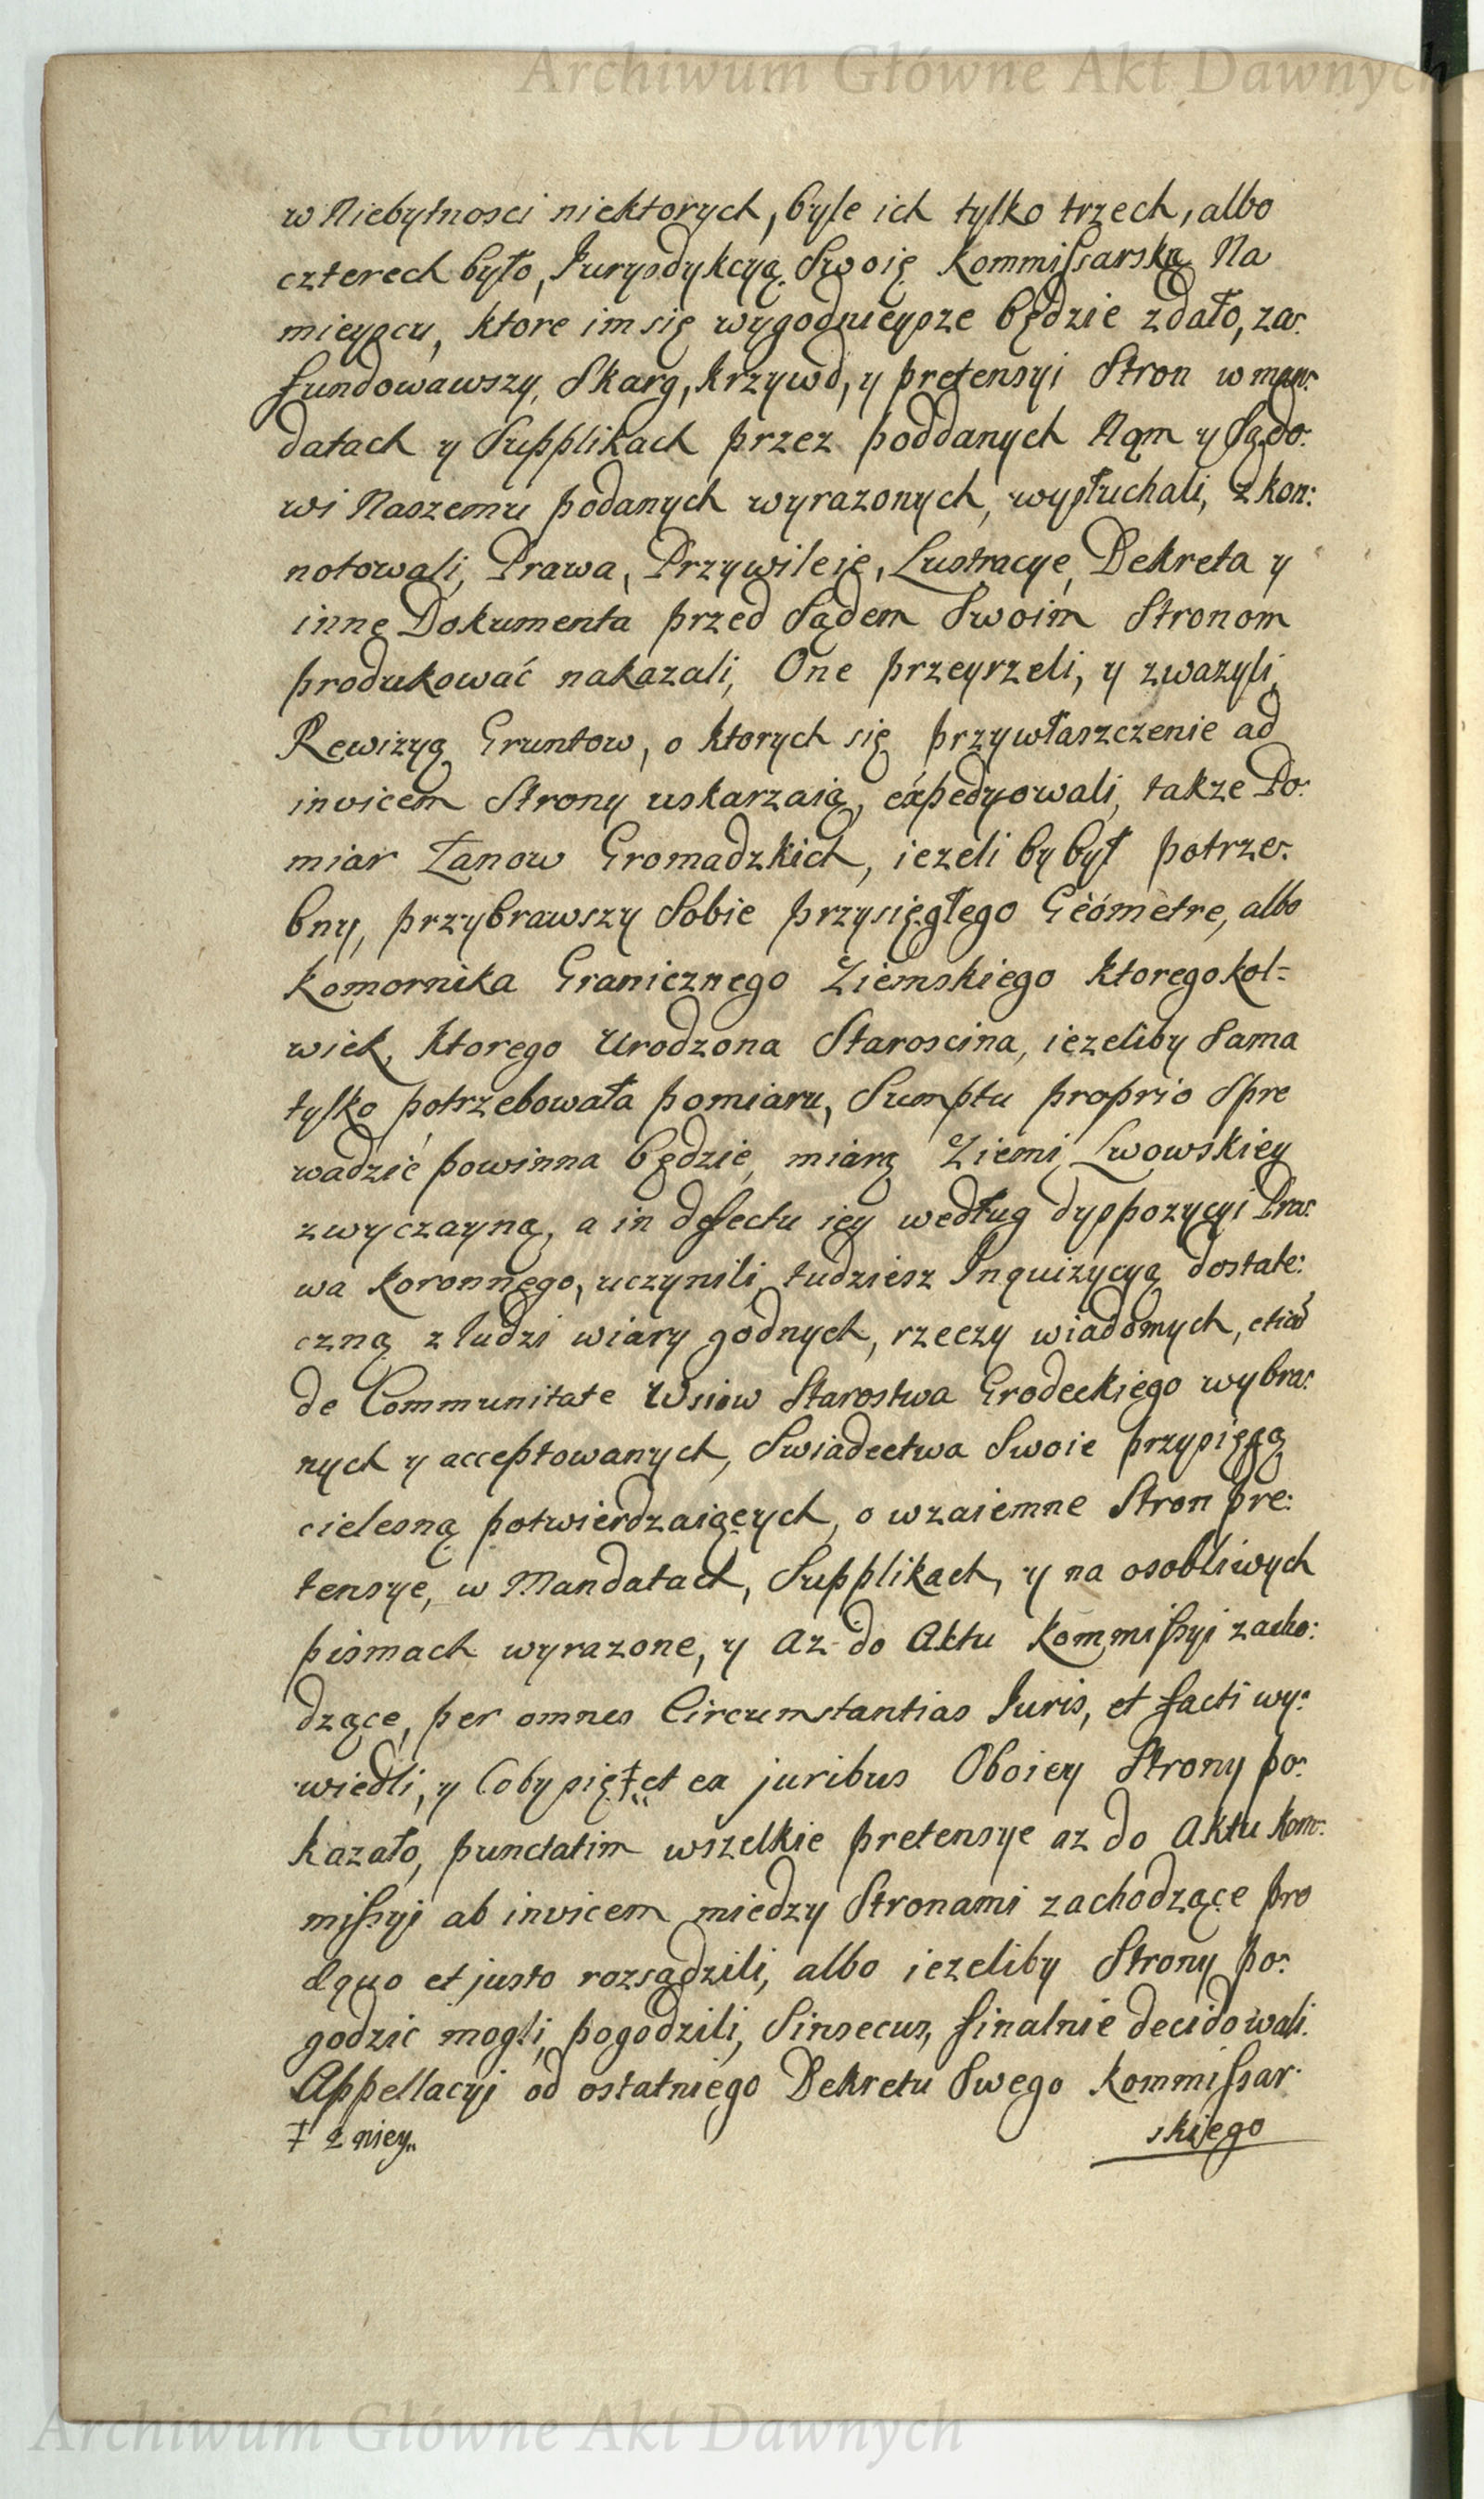 Archiwum Główne Akt Dawnych
w Niebytnosci niektorych, byle ich tylko trzech, albo
czterech było, Jurysdykcyą Swoię Kommissarską Na
mieyscu, ktore im się wygodnieysze będzie zdało, za:
fundowawszy, Skarg, krzywd, y pretensyi Stron w man:
datach y Supplikach przez poddanych Nąm y Sądo:
wi Naszemu podanych wyrazonych, wysłuchali, zkon:
notowali, Prawa, Przywileie, Lustracye, Dekreta y
inne Dokumenta przed Sądem Swoim Stronom
produkować nakazali, One przeyrzeli, y zwazyli,
Rewizyą Gruntow, o ktorych się przywłaszczenie ad
invicem Strony uskarzaią, expedyowali, takze Po:
miar Łanow Gromadzkich, iezeli by był potrze:
bny, przybrawszy Sobie przysięgłego Geometre, albo
Komornika Granicznego Ziemskiego ktoregokol=
wiek, ktorego Urodzona Staroscina, iezeliby Sama
tylko potrzebowała pomiaru, Sumptu proprio Spro
wadzić powinna będzie, miarą Ziemi Lwowskiey
zwyczayną, a in defectu iey według dyspozycyi Pra:
wa Koronnego, uczynili, tudziesz Inquizycyą dostate:
czną z ludzi wiary godnych, rzeczy wiadomych, etiã
de Communitate Wsiow Starostwa Grodeckiego wybra:
nych y acceptowanych, Swiadectwa Swoie przysięgą
cielesną potwierdzaiących, o wzaiemne Stron pre:
tensye, w Mandatach, Supplikach, y na osobliwych
pismach wyrazone, y az do Aktu Kommissyi zacho:
dzące, per omnes Circumstantias Juris, et facti wy:
wiedli, y Coby się ‡ et ex juribus Oboiey Strony po:
kazało, punctatim wszelkie pretensye az do Aktu Kom:
missyi ab invicem miedzy Stronami zachodzące pro
æquo et justo rozsądzili, albo iezeliby Strony po:
godzic mogli, pogodzili, Sinsecus, finalnie decidowali.
Appellacyi od ostatniego Dekretu Swego Kommissar:
‡ z niey
skiego
Archiwum Główne Akt Dawnych